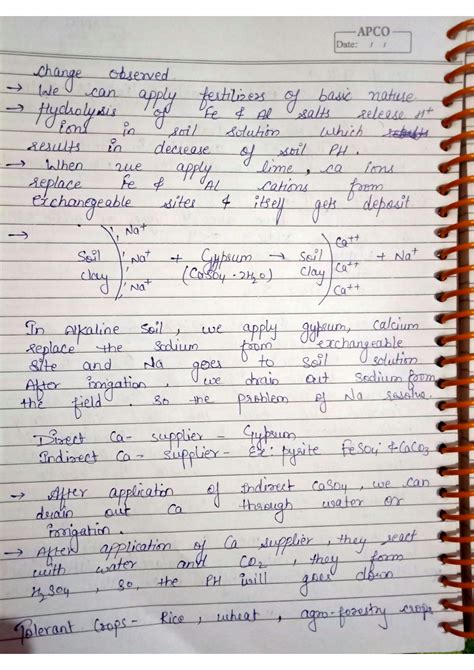 APCO
Date: / /
change observed
→ We can apply fertilizers of basic nature
→ Hydrolysis of Fe & Al salts release H+
ions in soil solution which
results in decrease of soil PH.
→ When we apply lime, ca ions
replace Fe & Al cations from
Exchangeable sites & itself gets deposit
→ Soil clay) Na+ Na+ Na+ + Gypsum (CaSO4 · 2H2O) → Soil clay) Ca++ Ca++ Ca++ + Na+
In Alkaline Soil, we apply gypsum, calcium
replace the sodium from exchangeable
site and Na goes to soil solution
After irrigation, we drain out sodium from
the field. so the problem of Na
Direct Ca- supplier - Gypsum
Indirect Ca- supplier - Ex: pyrite FeSO4 & CaCO3
→ After application of indirect CaSO4, we can
drain out Ca through water or
irrigation.
→ After application of Ca supplier, they react
with water and CO2, they form
H2SO4, so, the PH will goes down
Tolerant Crops - Rice, wheat, agro-forestry crops